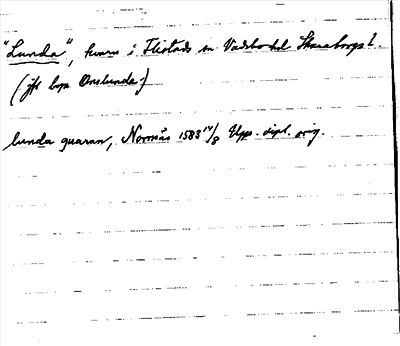 "Lunda", kvarn i Flistads sn Vadsbo hd Skaraborgs l.
(jfr byn Onslunda?)
lunda quarnn, Norrnäs 1583 14/8 Upps. dipl. orig.